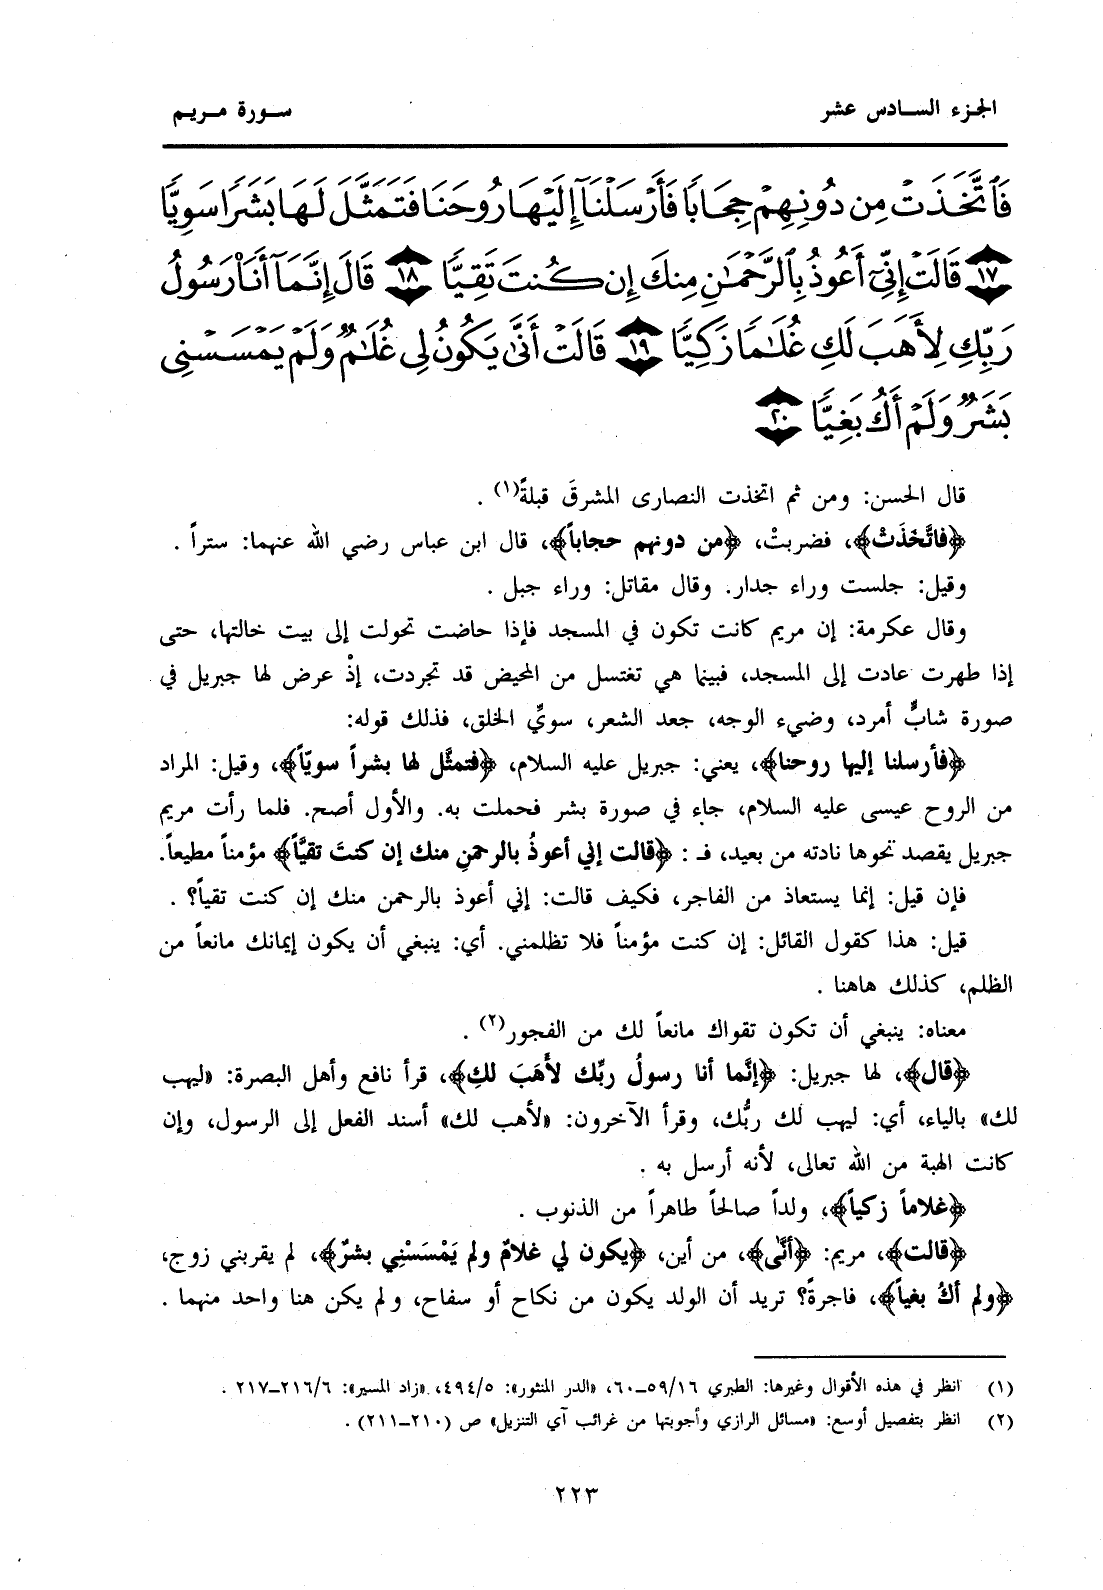 الجزء السادس عشر
سورة مريم
فَٱتَّخَذَتْ مِن دُونِهِمْ حِجَابًا فَأَرْسَلْنَآ إِلَيْهَا رُوحَنَا فَتَمَثَّلَ لَهَا بَشَرًا سَوِيًّا
١٧ قَالَتْ إِنِّىٓ أَعُوذُ بِٱلرَّحْمَٰنِ مِنكَ إِن كُنتَ تَقِيًّا ١٨ قَالَ إِنَّمَآ أَنَا۠ رَسُولُ
رَبِّكِ لِأَهَبَ لَكِ غُلَٰمًا زَكِيًّا ١٩ قَالَتْ أَنَّىٰ يَكُونُ لِى غُلَٰمٌ وَلَمْ يَمْسَسْنِى
بَشَرٌ وَلَمْ أَكُ بَغِيًّا ٢٠
قال الحسن: ومن ثم اتخذت النصارى المشرقَ قبلةً(١) .
﴿فاتَّخَذَتْ﴾، فضربتْ، ﴿من دونهم حجاباً﴾، قال ابن عباس رضي الله عنهما: ستراً .
وقيل: جلست وراء جدار. وقال مقاتل: وراء جبل .
وقال عكرمة: إن مريم كانت تكون في المسجد فإذا حاضت تحولت إلى بيت خالتها، حتى
إذا طهرت عادت إلى المسجد، فبينما هي تغتسل من المحيض قد تجردت، إذْ عرض لها جبريل في
صورة شابٍّ أمرد، وضيء الوجه، جعد الشعر، سويِّ الخلق، فذلك قوله:
﴿فأرسلنا إليها روحنا﴾، يعني: جبريل عليه السلام، ﴿فتمثَّل لها بشراً سويّاً﴾، وقيل: المراد
من الروح عيسى عليه السلام، جاء في صورة بشر فحملت به. والأول أصح. فلما رأت مريم
جبريل يقصد نحوها نادته من بعيد، فـ : ﴿قالت إني أعوذُ بالرحمنِ منك إن كنتَ تقيَّاً﴾ مؤمناً مطيعاً.
فإن قيل: إنما يستعاذ من الفاجر، فكيف قالت: إني أعوذ بالرحمن منك إن كنت تقياً؟ .
قيل: هذا كقول القائل: إن كنت مؤمناً فلا تظلمني. أي: ينبغي أن يكون إيمانك مانعاً من
الظلم، كذلك هاهنا .
معناه: ينبغي أن تكون تقواك مانعاً لك من الفجور(٢) .
﴿قال﴾، لها جبريل: ﴿إنَّما أنا رسولُ ربِّك لأَهَبَ لكِ﴾، قرأ نافع وأهل البصرة: «ليهب
لك» بالياء، أي: ليهب لك ربُّك، وقرأ الآخرون: «لأهب لك» أسند الفعل إلى الرسول، وإن
كانت الهبة من الله تعالى، لأنه أرسل به .
﴿غلاماً زكياً﴾، ولداً صالحاً طاهراً من الذنوب .
﴿قالت﴾، مريم: ﴿أنَّى﴾، من أين، ﴿يكون لي غلامٌ ولم يَمْسَسْنِي بشرٌ﴾، لم يقربني زوج،
﴿ولم أكُ بغياً﴾، فاجرةً؟ تريد أن الولد يكون من نكاح أو سفاح، ولم يكن هنا واحد منهما .
(١) انظر في هذه الأقوال وغيرها: الطبري ٥٩/١٦ــ٦٠، «الدر المنثور»: ٤٩٤/٥، «زاد المسير»: ٢١٦/٦ــ٢١٧ .
(٢) انظر بتفصيل أوسع: «مسائل الرازي وأجوبتها من غرائب آي التنزيل» ص (٢١٠ــ٢١١) .
٢٢٣